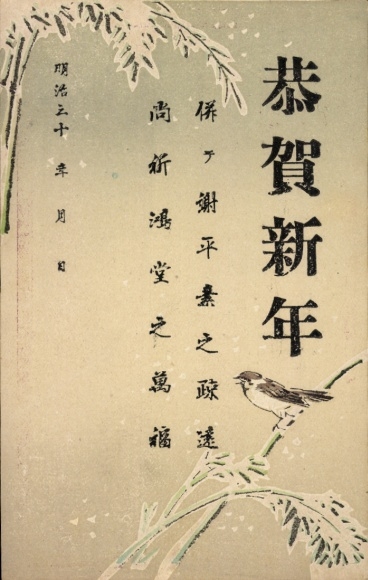 恭賀新年
併テ謝平素之疎遠
尚祈鴻堂之萬福
明治三十 年 月 日